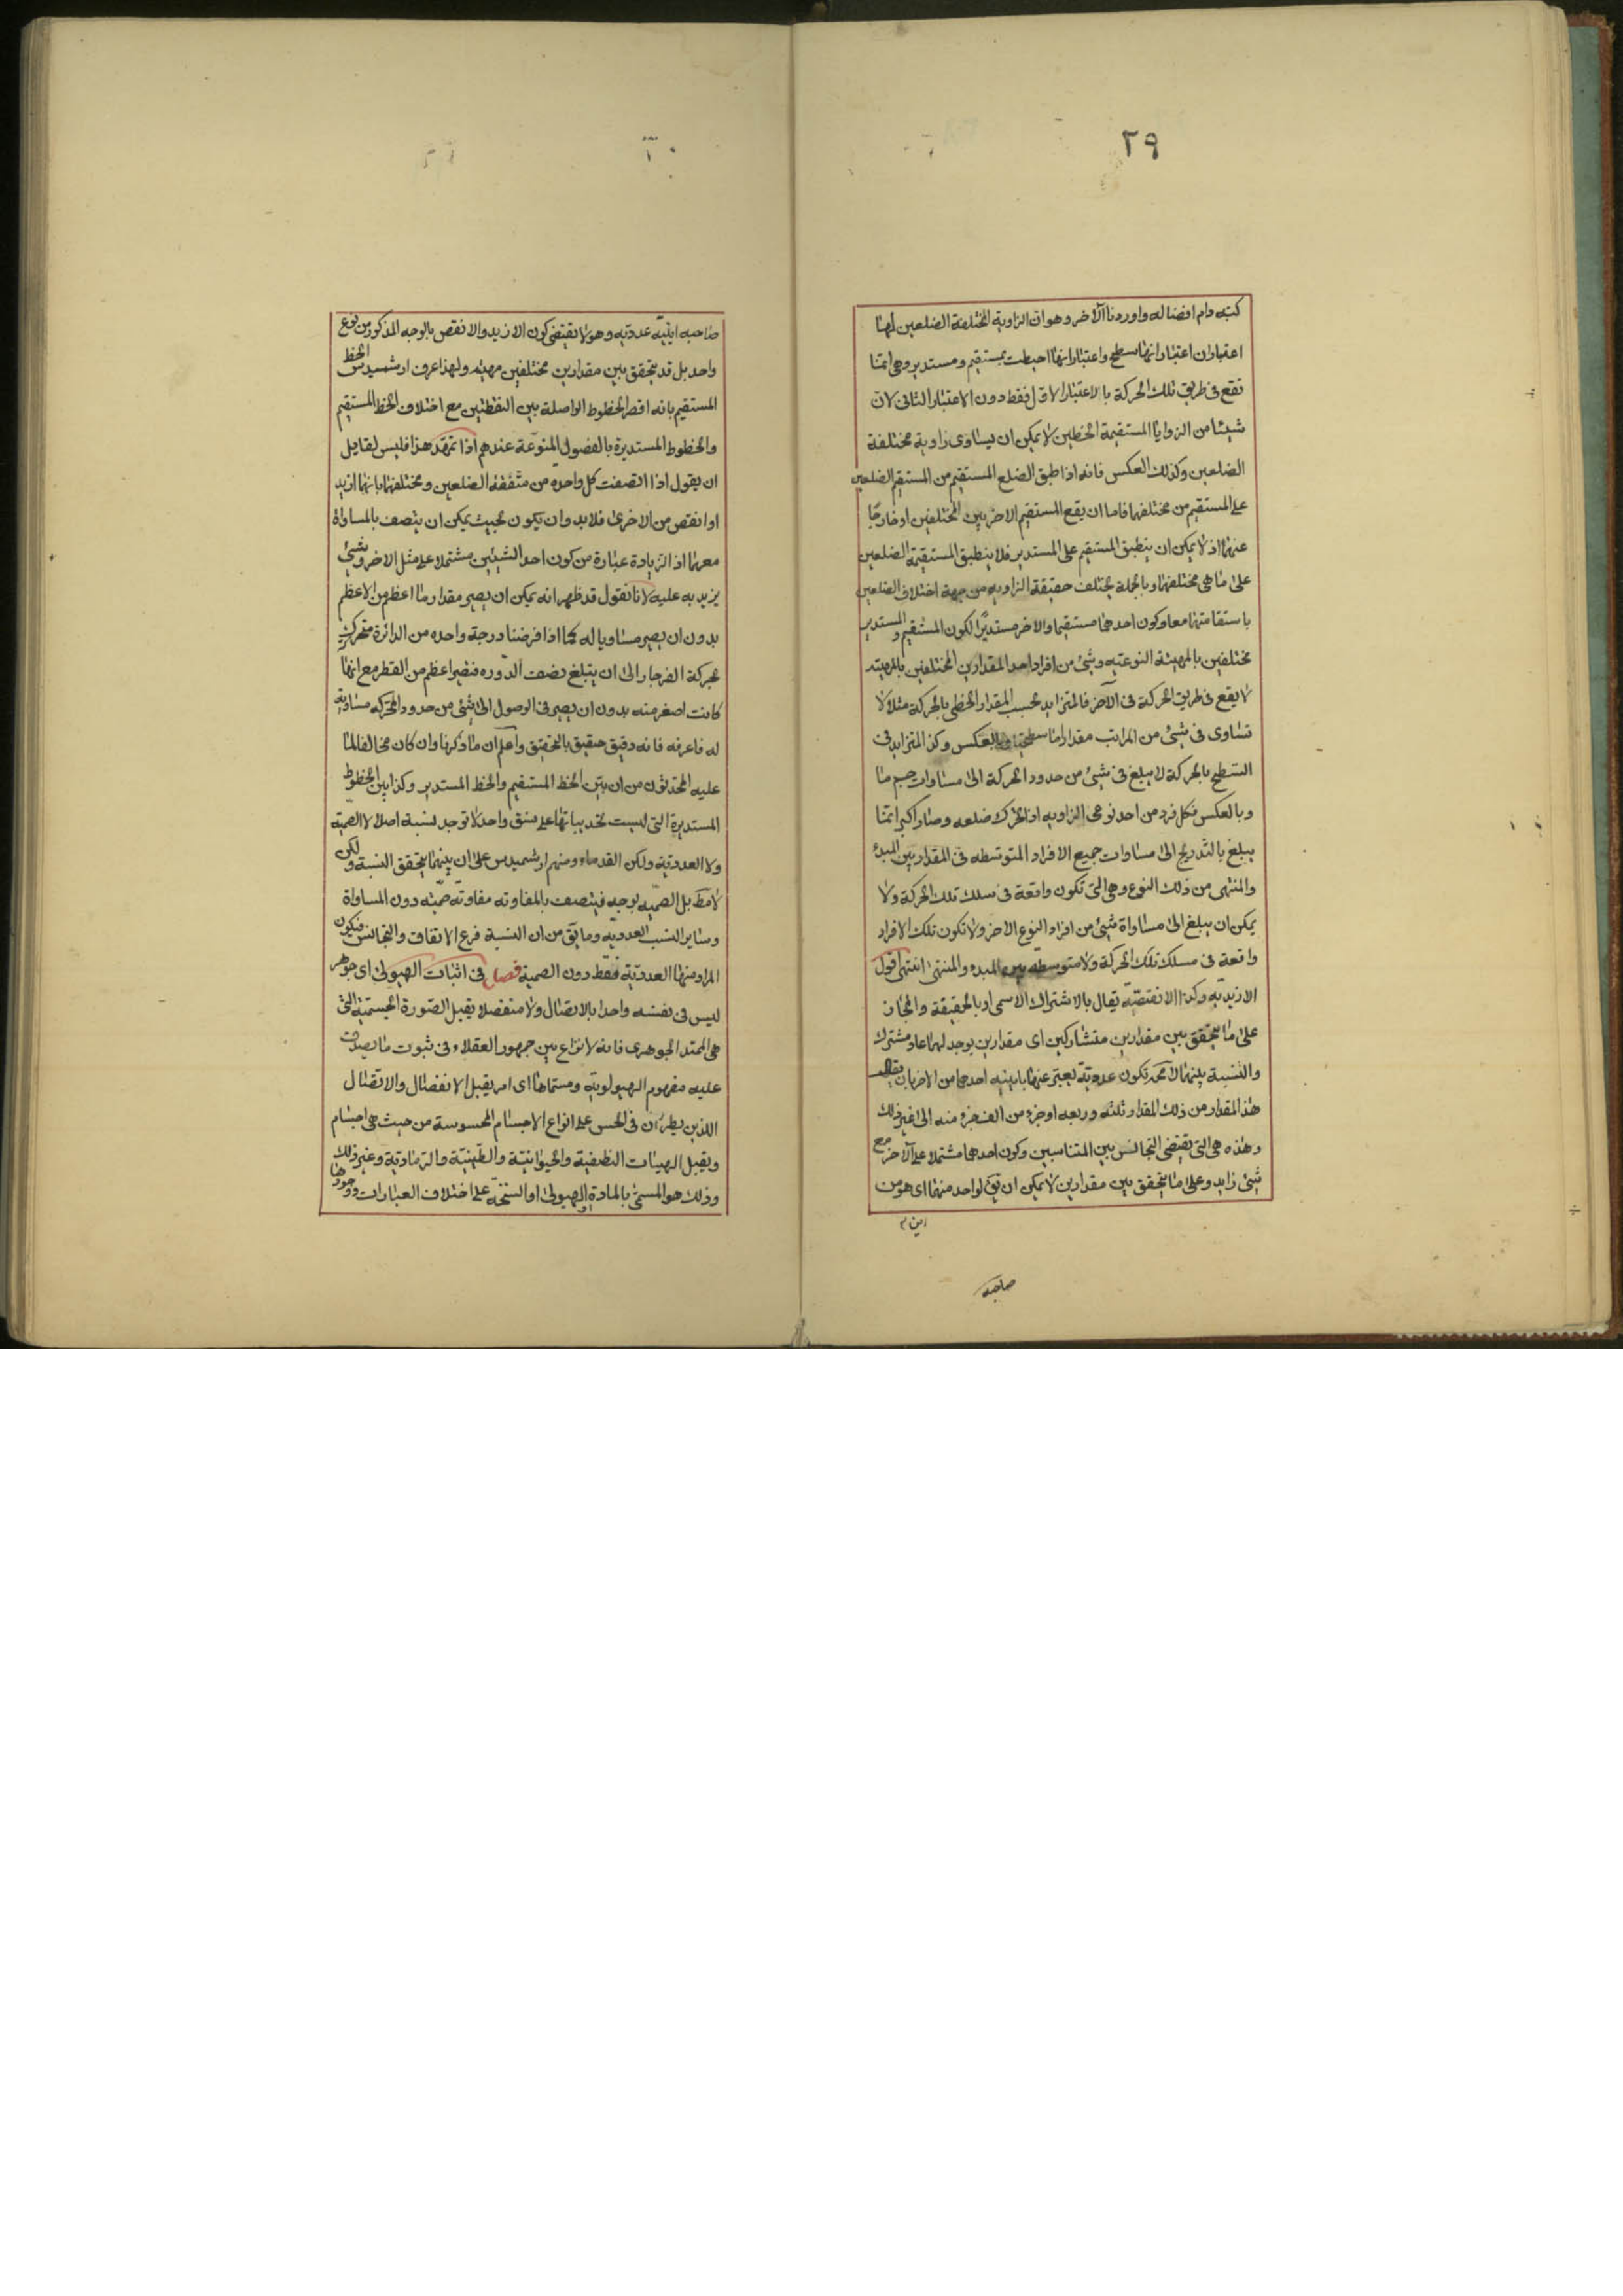 ٢٩
كتبه دام افضاله واوردنا الآخر وهو ان الزاوية المختلفة الضلعين لها
اعتباران اعتبار انها سطح واعتبار انها احيطت بمستقيم ومستدير وهى انما
تقع فى طريق تلك الحركة بالاعتبار الاول فقط دون الاعتبار الثانى لان
شيئا من الزوايا المستقيمة الخطين لا يمكن ان يساوى زاوية مختلفة
الضلعين وكذلك العكس فانه اذا طبق الضلع المستقيم من المستقيم الضلعين
على المستقيم من مختلفها فاما ان يقع المستقيم الاخر بين المختلفين او خارجا
عنهما اذ لا يمكن ان ينطبق المستقيم على المستدير فلا ينطبق المستقيمة الضلعين
على ما هى مختلفتها وبالجملة يختلف حقيقة الزاويه من جهة اختلاف الضلعين
باستقامتهما معا وكون احدهما مستقيما والاخر مستديرا لكون المستقيم والمستدير
مختلفين بالمهية النوعيه وشئ من افراد احد المقدارين المختلفين بالمهيته
لا يقع فى طريق الحركة فى الآخر فالمتزايد بحسب المقدار الخطى بالحركة مثلا لا
تساوى فى شئ من المراتب مقدارا ما سطحيا وبالعكس وكذا المتزايد فى
السطح بالحركة لا يبلغ فى شئ من حدود الحركة الى مساوات جسم ما
وبالعكس فكل فرد من احد نوعى الزاويه اذا تحرك ضلعه وصار اكبر انما
يبلغ بالتدريج الى مساوات جميع الافراد المتوسطه فى المقدار بين المبدء
والمنتهى من ذلك النوع وهى التى تكون واقعة فى سلك تلك الحركة ولا
يمكن ان يبلغ الى مساواة شئ من افراد النوع الاخر ولا تكون تلك الافراد
واقعة فى مسلك تلك الحركة ولا متوسطه بين المبدء والمنتهى انتهى اقول
الازيديه وكذا الانقصيّة يقال بالاشتراك الاسمى او بالحقيقة والمجاز
على ما يتحقق بين مقدارين متشاركين اى مقدارين يوجد لهما عاد مشترك
والنسبة بينهما لا محة تكون عددية يعبر عنها باينيه احدهما من الاخر بان يقال
هذا المقدار من ذلك المقدار ثلثه وربعه او جزء من الف جزء منه الى غير ذلك
وهذه هى التى يقتضى التجانس بين المتناسبين وكون احدهما مشتملا على الآخر مع
شئ زايد وعلى ما يتحقق بين مقدارين لا يمكن ان يكون لواحد منهما اى هو من
صاحبه
صاحبه ايّيّة عدديّه وهو لا يقتضى كون الازيد والانقص بالوجه المذكور من نوع
واحد بل قد يتحقق بين مقدارين مختلفين مهيّه ولهذا عرف ارشميدس الخط
المستقيم بانه اقصر الخطوط الواصلة بين النقطتين مع اختلاف الخط المستقيم
والخطوط المستديرة بالفصول المنوّعة عندهم اذا تمهّد هذا فليس لقايل
ان يقول اذا اتصفت كل واحده من متّفقة الضلعين ومختلفها بانها ازيد
او انقص من الاخرى فلا بد وان يكون بحيث يمكن ان يتصف بالمساواة
معها اذ الزيادة عبارة من كون احد الشيئين مشتملا على مثل الاخر وشئ
يزيد به عليه لانا نقول قد ظهر انه يمكن ان يصير مقدار ما اعظم من الاعظم
بدون ان يصير مساويا له كما اذا فرضنا درجة واحده من الدائرة متحركة
بحركة الفرجار الى ان يتبلغ نصف الدوره فتصير اعظم من القطر مع انها
كانت اصغر منه بدون ان يصير فى الوصول الى شئ من حدود الحركه مساوية
له فاعرفه فانه دقيق حقيق بالتحقيق واعلم ان ما ذكرنا وان كان مخالفا لما
عليه المحدثون من ان بين الخط المستقيم والخط المستدير وكذا بين الخطوط
المستديرة التى ليست تحديباتها على نسق واحد لا توجد نسبة اصلا لا الصمية
ولا العدديّة ولكن القدماء ومنهم ارشميدس على ان بينهما يتحقق النسبة ولكن
لا مط بل الصميه بوجه فيتصف بالمفاوته مفاوتة صميّه دون المساواة
وساير النسب العدديه وما يق من ان النسبة فرع الاتفاق والتجانس فيكون
المراد منها العدديّة فقط دون الصمية فصل فى اثبات الهيولى اى جوهر
ليس فى نفسه واحدا بالاتصال ولا منفصلا يقبل الصورة الجسمية التى
هى الممتد الجوهرى فانه لا نزاع بين جمهور العقلاء فى ثبوت ما يصدق
عليه مفهوم الهيولوية ومسماها اى امر يقبل الانفصال والاتصال
اللذين يطرئان فى الحس على انواع الاجسام المحسوسة من حيث هى اجسام
ويقبل الهيئات النطفية والحيوانية والطينية والرمادية وغير ذلك
وذلك هو المسمى بالمادة او الهيولى او السنخة على اختلاف العبارات ووجودها